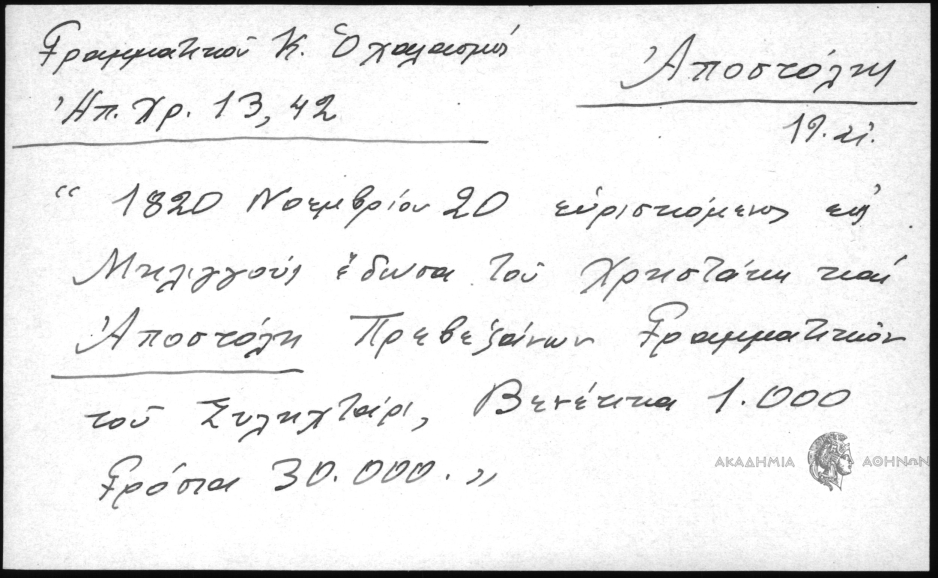 Γραμματικοῦ Κ. Ὁ χαλασμός
Ἠπ. Χρ. 13, 42
Ἀποστόλη
19. αἰ.
“ 1820 Νοεμβρίου 20 εὑρισκόμενος εἰς
Μηλιγγούς ἔδωσα τοῦ Χρηστάκη καί
Ἀποστόλη Πρεβεζάνων Γραμματικῶν
τοῦ Συληχτάρι, Βενέτικα 1.000
Γρόσια 30.000.”
ΑΚΑΔΗΜΙΑ ΑΘΗΝΩΝ